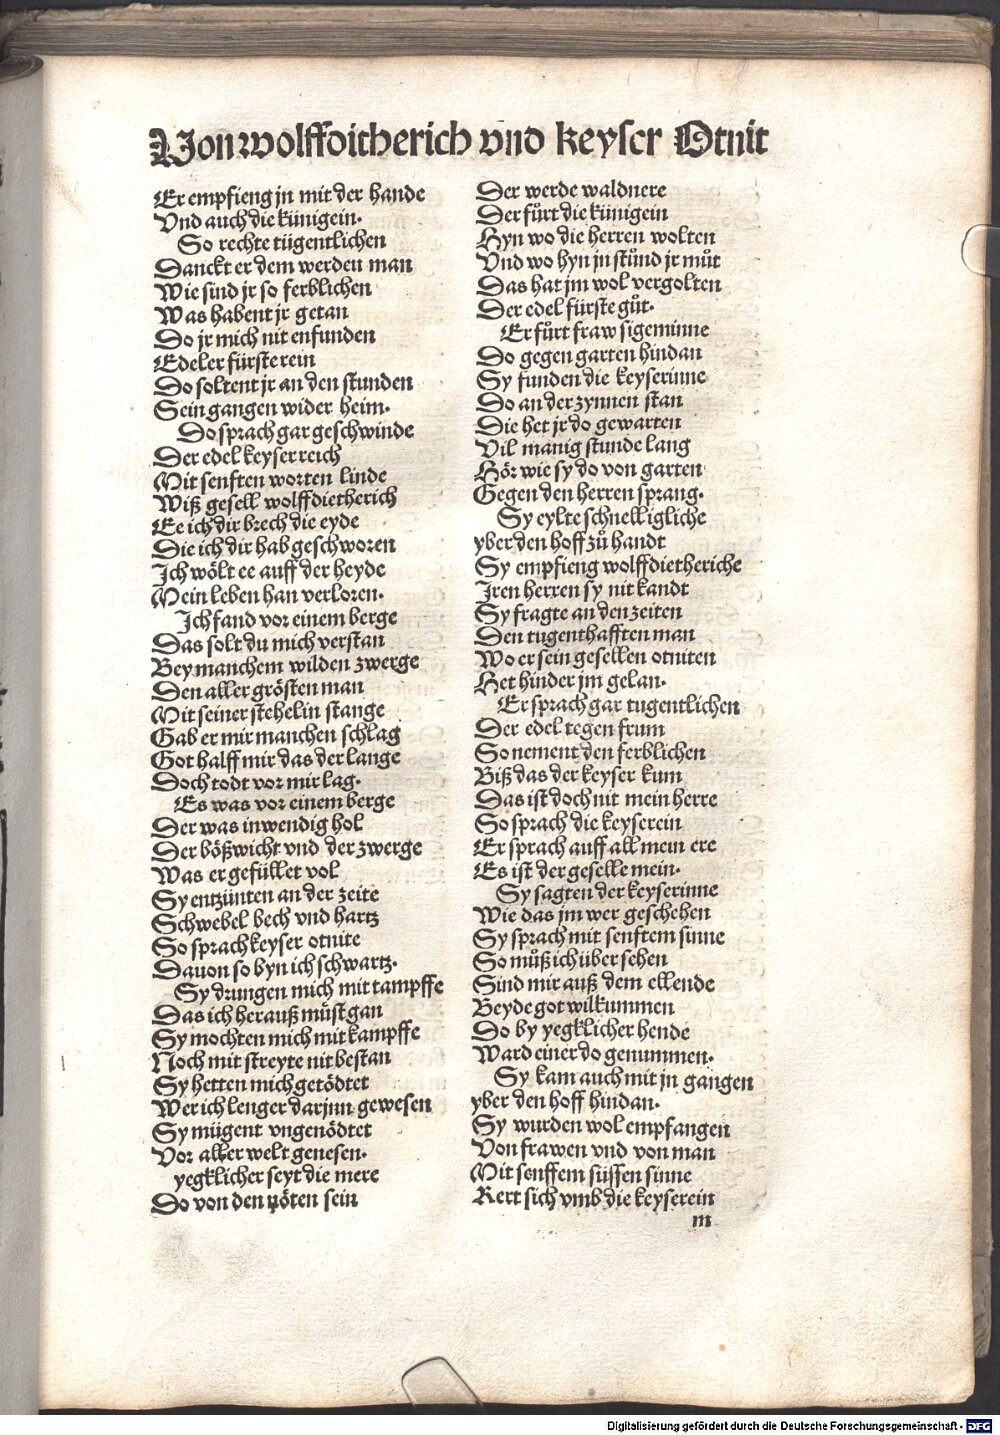 Von wolffdietherich vnd keyser Otnit
Er empfieng jn mit der hande
Vnd auch die künigein.
So rechte tügentlichen
Danckt er dem werden man
Wie sind jr so ferblichen
Was habent jr getan
Do jr mich nit enfunden
Edeler fürste rein
Do soltent jr an den stunden
Sein gangen wider heim.
Do sprach gar geschwinde
Der edel keyser reich
Mit senften worten linde
Wiß gesell wolffdietherich
Ee ich dir brech die eyde
Die ich dir hab geschworen
Ich wölt ee auff der heyde
Mein leben han verloren.
Ich fand vor einem berge
Das solt du mich verstan
Bey manchem wilden zwerge
Den aller grösten man
Mit seiner stehelin stange
Gab er mir manchen schlag
Got halff mir das der lange
Doch todt vor mir lag.
Es was vor einem berge
Der was inwendig hol
Der bößwicht vnd der zwerge
Was er gefüllet vol
Sy entzünten an der zeite
Schwebel bech vnd hartz
So sprach keyser otnite
Dauon so byn ich schwartz.
Sy drungen mich mit tampffe
Das ich herauß müst gan
Sy mochten mich mit kampffe
Noch mit streyte nit bestan
Sy hetten mich getödtet
Wer ich lenger darjnn gewesen
Sy mügent vngenödtet
Vor aller welt genesen.
yegklicher seyt die mere
Do von den nöten sein
Der werde waldnere
Der fůrt die künigein
Hyn wo die herren wolten
Vnd wo hyn jn stůnd jr můt
Das hat jm wol vergolten
Der edel fürste gůt.
Er fůrt fraw sigeminne
Do gegen garten hindan
Sy funden die keyserinne
Do an der zynnen stan
Die het jr do gewarten
Vil manig stunde lang
Hör wie sy do von garten
Gegen den herren sprang.
Sy eylte schnelligliche
yber den hoff zů handt
Sy empfieng wolffdietheriche
Iren herren sy nit kandt
Sy fragte an den zeiten
Den tugenthafften man
Wo er sein gesellen otniten
Het hinder jm gelan.
Er sprach gar tugentlichen
Der edel tegen frum
So nement den ferblichen
Biß das der keyser kum
Das ist doch nit mein herre
So sprach die keyserein
Er sprach auff all mein ere
Es ist der geselle mein.
Sy sagten der keyserinne
Wie das jm wer geschehen
Sy sprach mit senftem sinne
So můß ich über sehen
Sind mir auß dem ellende
Beyde got wilkummen
Do by yegklicher hende
Ward einer do genummen.
Sy kam auch mit jn gangen
yber den hoff hindan.
Sy wurden wol empfangen
Von frawen vnd von man
Mit senffem süssen sinne
Kert sich vmb die keyserein
m
Digitalisierung gefördert durch die Deutsche Forschungsgemeinschaft - DFG